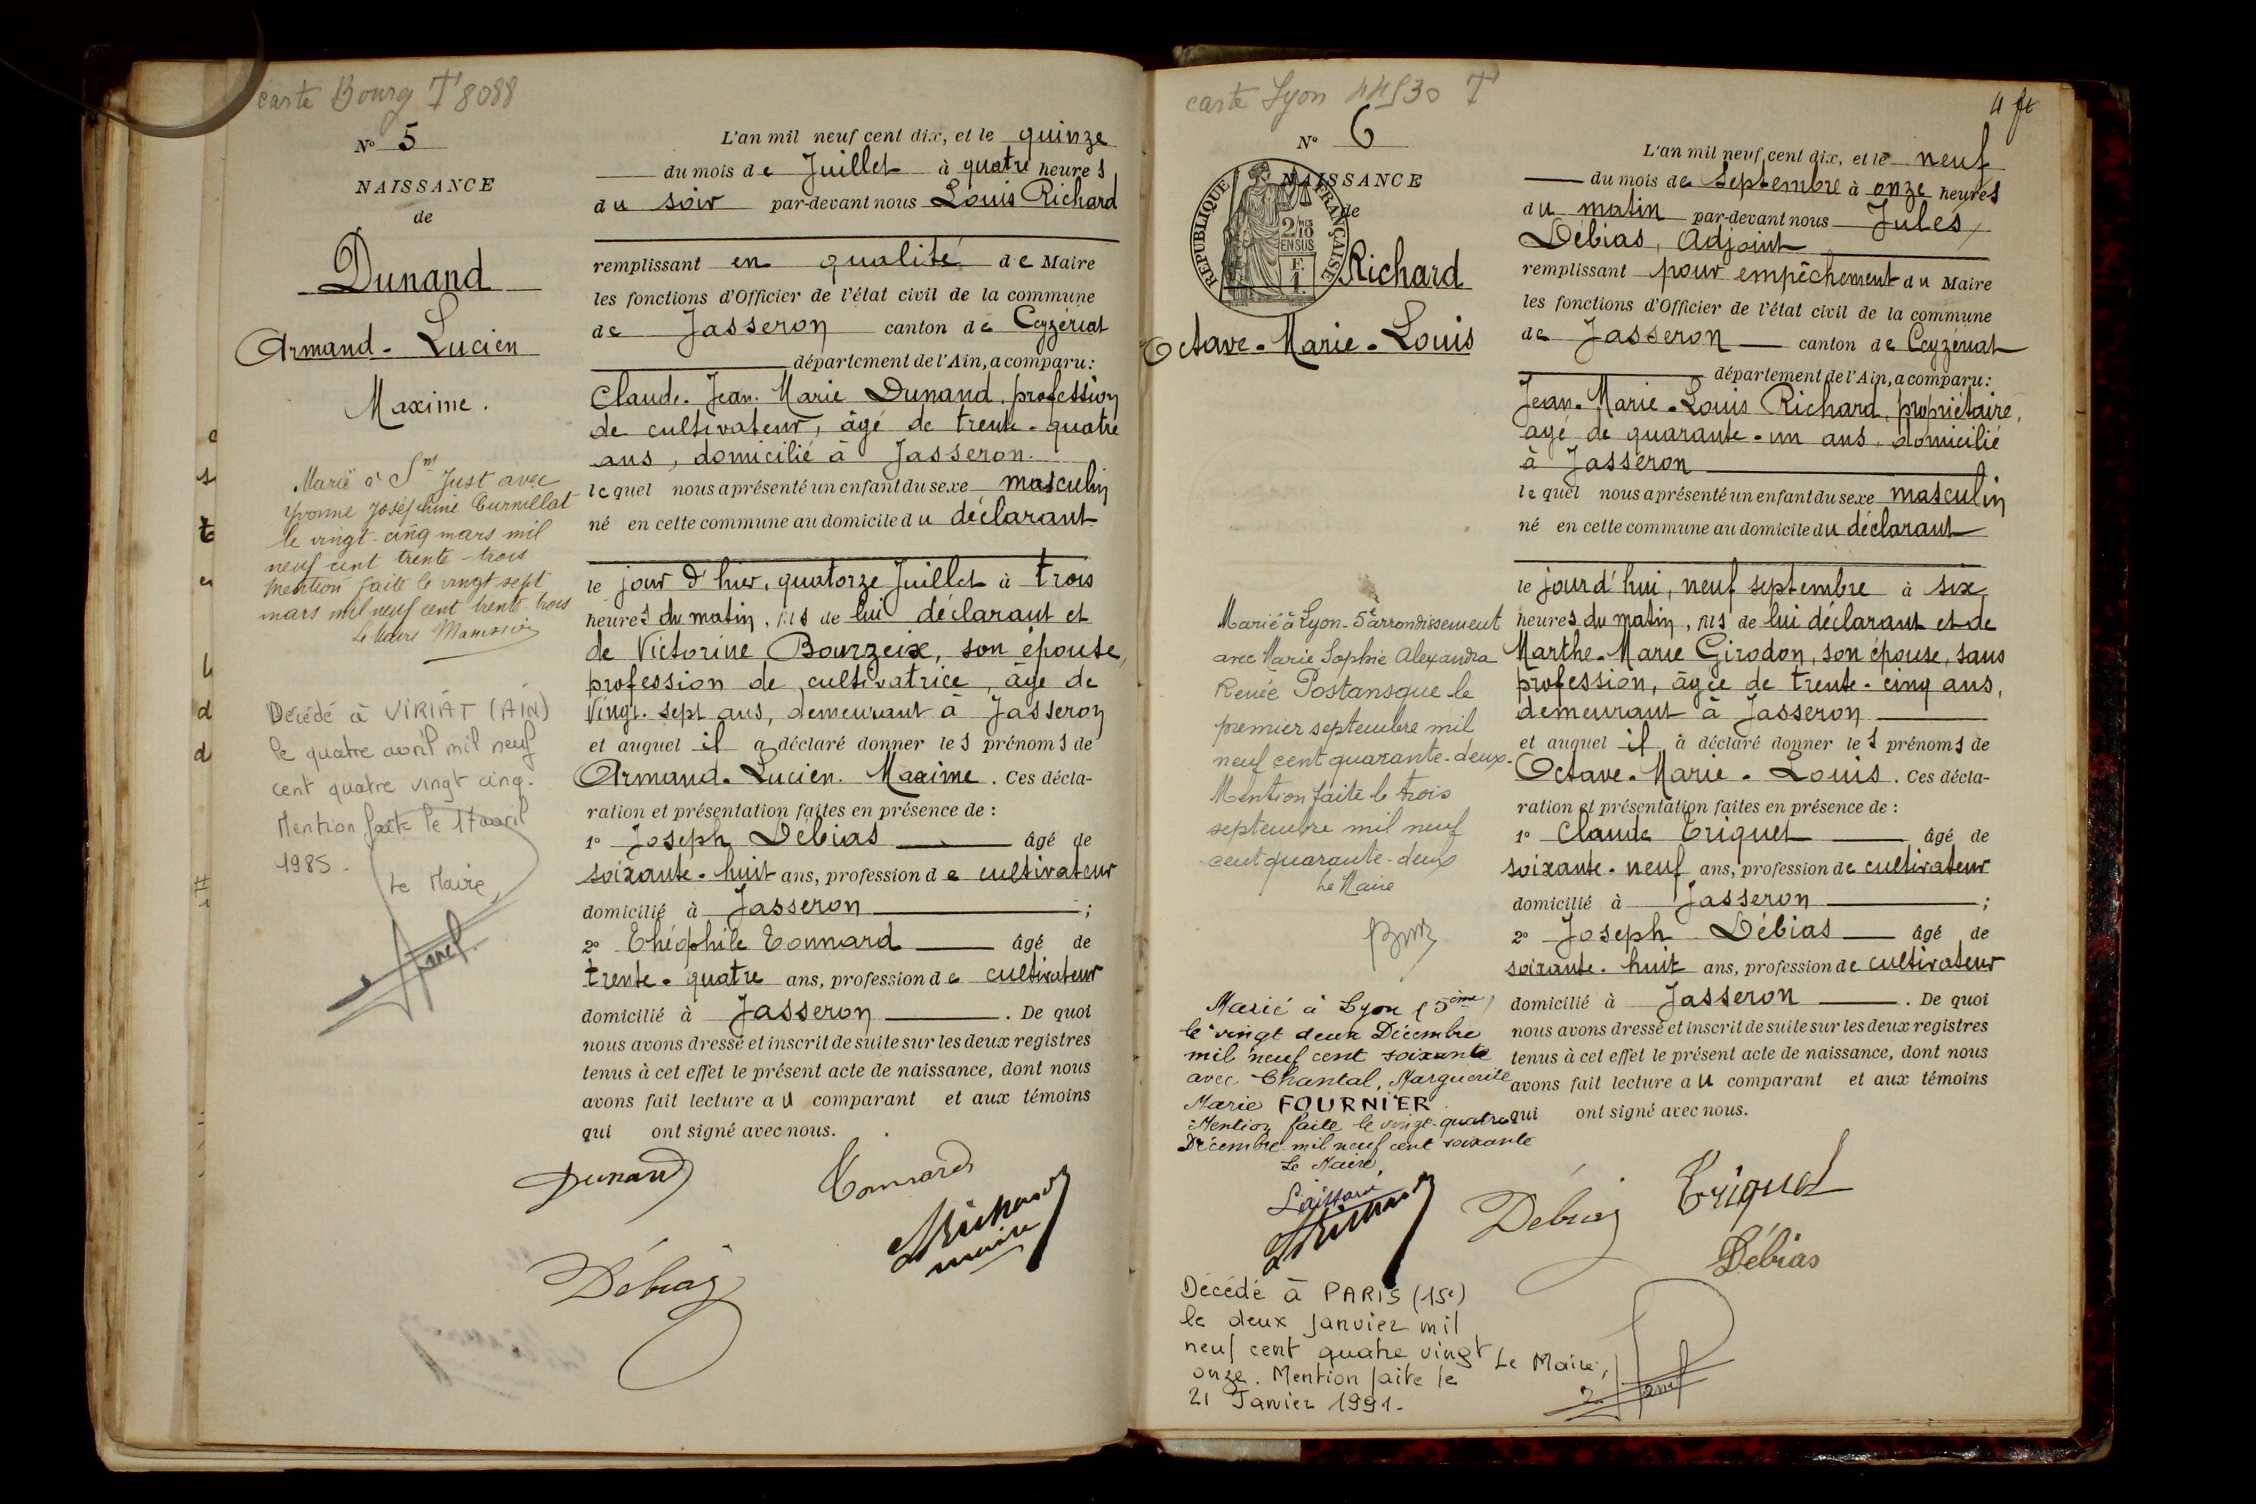 carte Bourg T 8088
N° 5
NAISSANCE
de
Dunand
Armand - Lucien
Maxime.
Marié à St Just avec
Yvonne Joséphine Curnillat
le vingt-cinq mars mil
neuf cent trente-trois
Mention faite le vingt sept
mars mil neuf cent trente-trois
Le Maire
Décédé à VIRIAT (AIN)
le quatre avril mil neuf
cent quatre vingt cinq.
Mention faite le 17 avril
1985.
Le Maire
L'an mil neuf cent dix, et le quinze
du mois de Juillet à quatre heures
du soir par-devant nous Louis Richard
remplissant en qualité de Maire
les fonctions d'Officier de l'état civil de la commune
de Jasseron canton de Ceyzériat
département de l'Ain, a comparu:
Claude-Jean-Marie Dunand, profession
de cultivateur, âgé de trente-quatre
ans, domicilié à Jasseron.
lequel nous a présenté un enfant du sexe masculin
né en cette commune au domicile du déclarant
le jour d'hier, quatorze Juillet à trois
heures du matin, fils de lui déclarant et
de Victorine Bourzeix, son épouse,
profession de cultivatrice, âgé de
vingt-sept ans, demeurant à Jasseron
et auquel il a déclaré donner les prénoms de
Armand-Lucien-Maxime. Ces décla-
ration et présentation faites en présence de :
1° Joseph Débias âgé de
soixante-huit ans, profession de cultivateur
domicilié à Jasseron ;
2° Théophile Tonnard âgé de
trente-quatre ans, profession de cultivateur
domicilié à Jasseron . De quoi
nous avons dressé et inscrit de suite sur les deux registres
tenus à cet effet le présent acte de naissance, dont nous
avons fait lecture au comparant et aux témoins
qui ont signé avec nous.
Dunand Tonnard
Richard
maire
Débias
carte Lyon 44530 T
4 ft
N° 6
NAISSANCE
de
REPUBLIQUE FRANÇAISE
2/10
EN SUS
Richard
Octave-Marie-Louis
Marié à Lyon-5e arrondissement
avec Marie Sophie Alexandra
Renée Postansque le
premier septembre mil
neuf cent quarante-deux.
Mention faite le trois
septembre mil neuf
cent quarante-deux
Le Maire
Marié à Lyon (5ème)
le vingt deux Décembre
mil neuf cent soixante
avec Chantal, Marguerite
Marie FOURNIER
Mention faite le vingt-quatre
Décembre mil neuf cent soixante
Le Maire,
Décédé à PARIS (15e)
le deux Janvier mil
neuf cent quatre vingt
onze. Mention faite le
21 Janvier 1991.
Le Maire,
L'an mil neuf cent dix, et le neuf
du mois de Septembre à onze heures
du matin par-devant nous Jules
Débias, Adjoint
remplissant pour empêchement du Maire
les fonctions d'Officier de l'état civil de la commune
de Jasseron canton de Ceyzériat
département de l'Ain, a comparu:
Jean-Marie-Louis Richard, propriétaire,
âgé de quarante-un ans, domicilié
à Jasseron
lequel nous a présenté un enfant du sexe masculin
né en cette commune au domicile du déclarant
le jourd'hui, neuf septembre à six
heures du matin, fils de lui déclarant et de
Marthe-Marie Girodon, son épouse, sans
profession, âgée de trente-cinq ans,
demeurant à Jasseron
et auquel il a déclaré donner les prénoms de
Octave-Marie-Louis. Ces décla-
ration et présentation faites en présence de :
1° Claude Triquet âgé de
soixante-neuf ans, profession de cultivateur
domicilié à Jasseron ;
2° Joseph Débias âgé de
soixante-huit ans, profession de cultivateur
domicilié à Jasseron . De quoi
nous avons dressé et inscrit de suite sur les deux registres
tenus à cet effet le présent acte de naissance, dont nous
avons fait lecture au comparant et aux témoins
qui ont signé avec nous.
Débias Triquet
Débias